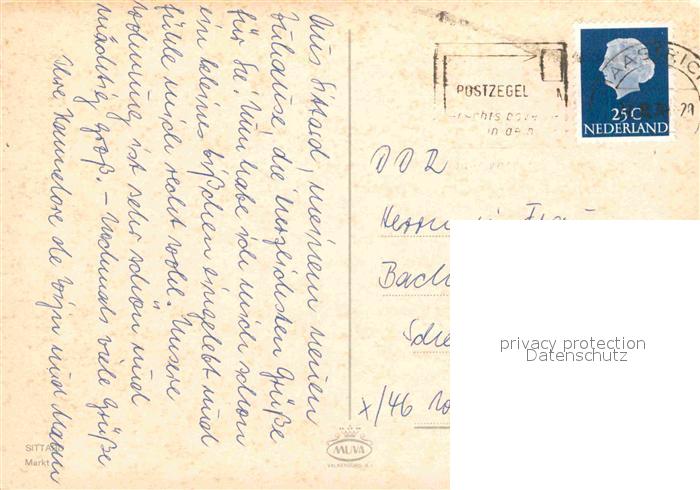 Aus Sittard, meinem neuen
Zuhause, die herzlichsten Grüße
für Sie! Nun habe ich mich schon
ein kleines bißchen eingelebt und
fühle mich recht wohl. Unsere
Wohnung ist sehr schön und
mächtig groß. – Nochmals viele Grüße
Ihre Hannelore de Wijn und Mann
SITTARD
Markt
MUVA
VALKENBURG
POSTZEGEL
rechts bove
in de
MAASTRICH
25 C
NEDERLAND
DDR
Herrn u. Frau
Bach
Sche
X/46
privacy protection
Datenschutz